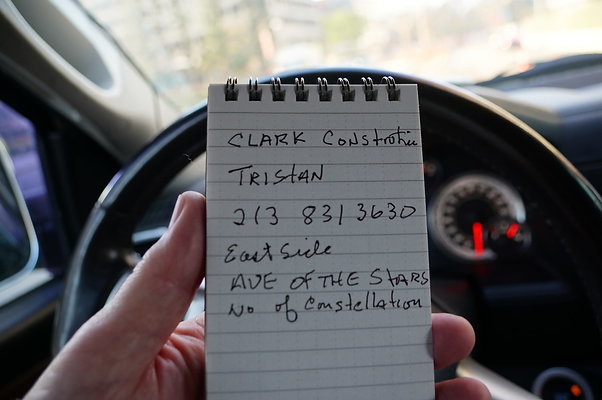 CLARK Constrotiu
TRISTAN
213 831 3630
East Side
AVE OF THE STARS
No of Constellation